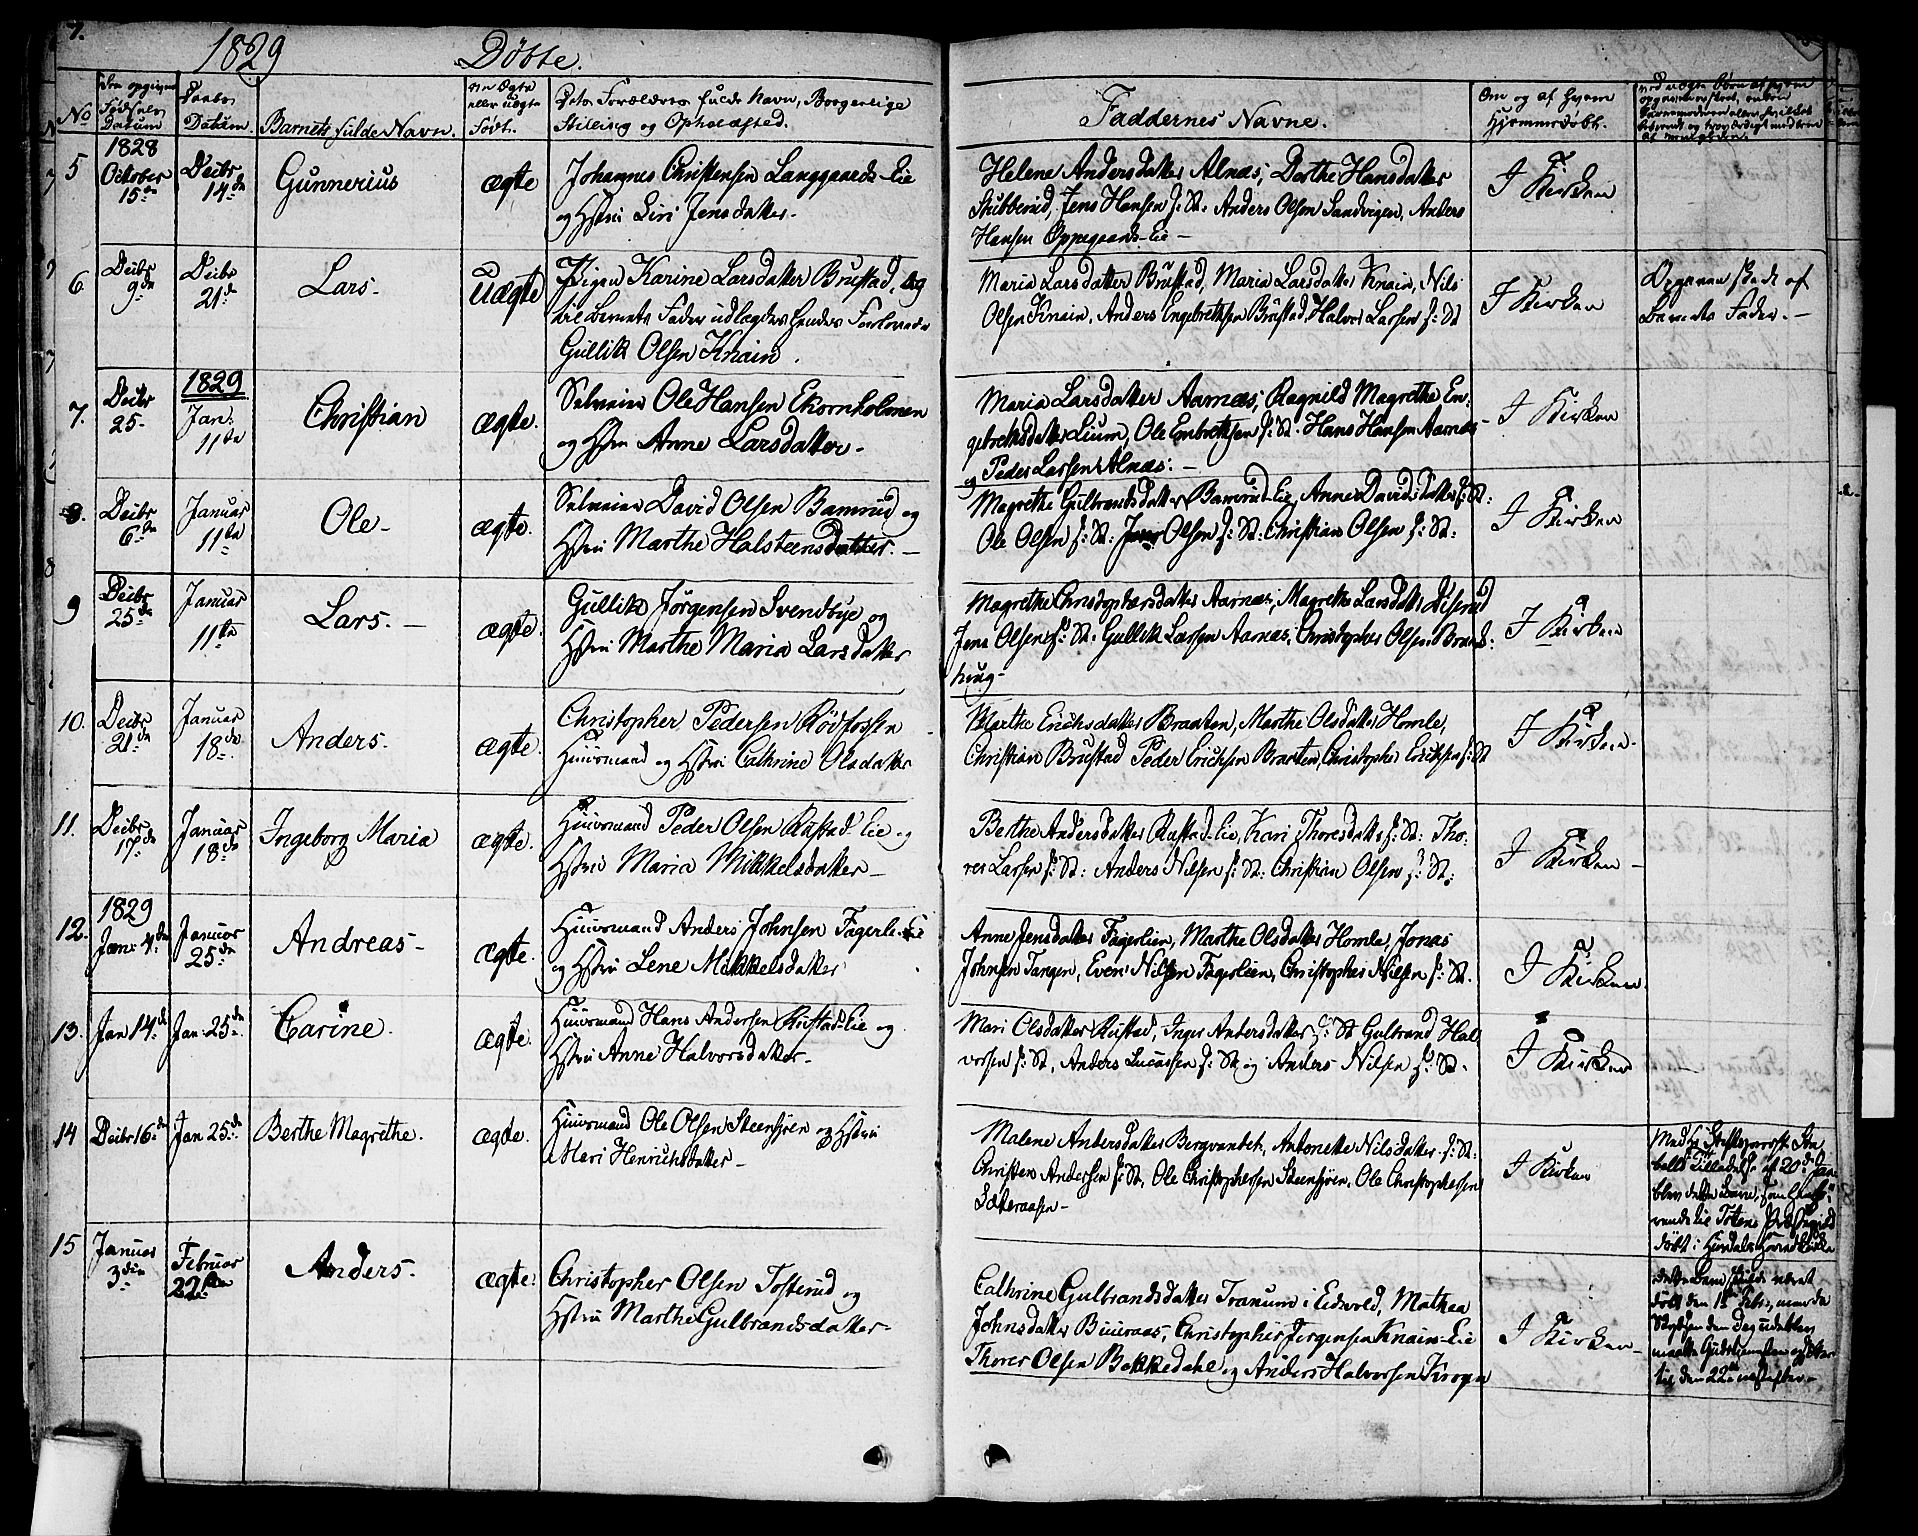 7.
1829 Döbte.
No
Den opgivne Födsels Datum
Daabs Datum.
Barnets fulde Navn.
om Ægte eller uægte Födt.
Dets Forældres fulde Navn, Borgerlige Stilling og Opholdsted.
Faddernes Navne.
Om og af hvem Hjemmedöbt.
5
1828
October 15de
Decbr 14de
Gunnerius
ægte
Johannes Christensen Langgaards-Eie
og Hstru Siri Jensdatter.
Helene Andersdatter Alnæs, Dorthe Hansdatter
Stubberud, Jens Hansen s: St: Anders Olsen Sandvigen, Anders
Hansen Oppegaards-Eie –
I Kirken
6
Decbr 9de
Decbr 21de
Lars.
Uægte
Pigen Karine Larsdatter Brustad, og
til Barnets Fader udlægdes hendes Forlovede
Gullik Olsen Knain.
Maria Larsdatter Brustad, Maria Larsdatter Knain, Nils
Olsen Knain, Anders Engebrethsen Brustad, Halvor Larsen s: St
I Kirken
Opgaven skede af
Barnets Fader. –
7.
Decbr 25.
1829
Jan: 11te
Christian
ægte.
Selveier Ole Hansen Ekornholmen
og Hstru Anne Larsdatter.
Maria Larsdatter Aarnæs, Ragnild Magrethe En-
gebrethsdatter Lium, Ole Embrethsen s: St. Hans Hansen Aarnæs
og Peder Larsen Alnæs. –
I Kirken
8.
Decbr 6de
Januar 11te
Ole –
ægte.
Selveier David Olsen Bamrud og
Hstru Marthe Halsteensdatter. –
Magrethe Gulbrandsdatter Bamrud-Eie, Anne Davidsdatter s: St:
Ole Olsen s: St: Jens Olsen s: St: Christian Olsen s: St:
I Kirken
9
Decbr 25de
Januar 11te
Lars. –
ægte.
Gullik Jörgensen Svendbye og
Hstru Marthe Maria Larsdatter
Magrethe Christophersdatter Aarnæs, Magrethe Larsdatter
Jens Olsen s: St: Gullik Larsen Aarnæs, Christopher Olsen Brand-
haug –
I Kirken
10.
Decbr 21de
Januar 18de
Anders.
ægte.
Christopher Pedersen Rödfossen
Huusmand og Hstru Cathrine Olsdatter
Marthe Erichsdatter Braaten, Marthe Olsdatter Homle,
Christian Brustad Peder Erichsen Braaten, Christopher Erichsen s: St
I Kirken.
11.
Decbr 17de
Januar 18de
Ingeborg Maria
ægte.
Huusmand Peder Olsen Rustad-Eie og
Hstru Maria Mikkelsdatter –
Berthe Andersdatter Rustad-Eie, Kari Thoresdatter s: St: Tho-
res Larsen s: St: Anders Nilsen s: St: Christian Olsen s: St:
I Kirken –
12.
1829
Jan: 4de
Januar 25de
Andreas –
ægte.
Huusmand Anders Johnsen Fagerli-Eie
og Hstru Lene Mikkelsdatter
Anne Jensdatter Fagerlien, Marthe Olsdatter Homle, Jonas
Johnsen Tangen, Even Nilsen Fagerlien, Christopher Nilsen s: St.
I Kirken.
13.
Jan 14de
Jan 25de
Carine.
ægte.
Huusmand Hans Andersen Rustad-Eie og
Hstru Anne Halvorsdatter –
Mari Olsdatter Rustad, Inger Andersdatter s: St Gulbrand Hal
vorsen s: St, Anders Lucassen s: St. og Anders Nilsen s: St.
I Kirken
14
Decbr 16de
Jan 25de
Berthe Magrethe.
ægte.
Huusmand Ole Olsen Steensjöen og Hstru
Mari Henrichsdatter –
Malene Andersdatter Bergvandet, Antonette Nilsdatter s: St:
Christen Andersen s: St, Ole Christophersen Steensjöen, Ole Christophersen
Sæteraasen –
I Kirken
blev dette Barn, som henhö-
rende til Totens Præstegield
döbt i Hurdals Hovedkirke
15
Januar 3die
Februar 22de
Anders.
ægte.
Christopher Olsen Tosterud og
Hstru Marthe Gulbrandsdatter –
Cathrine Gulbrandsdatter Tranum i Eidsvold, Mathea
Johnsdatter Buuraas, Christopher Jörgensen Knain-Eie
Thorer Olsen Bakkedahl og Anders Halvorsen Krogen
I Kirken –
dette Barn skulde været
döbt den 15de Febr., men da
den Dag udeblev,
maatte Gudstjenesten opsættes
til den 22de næstefter –